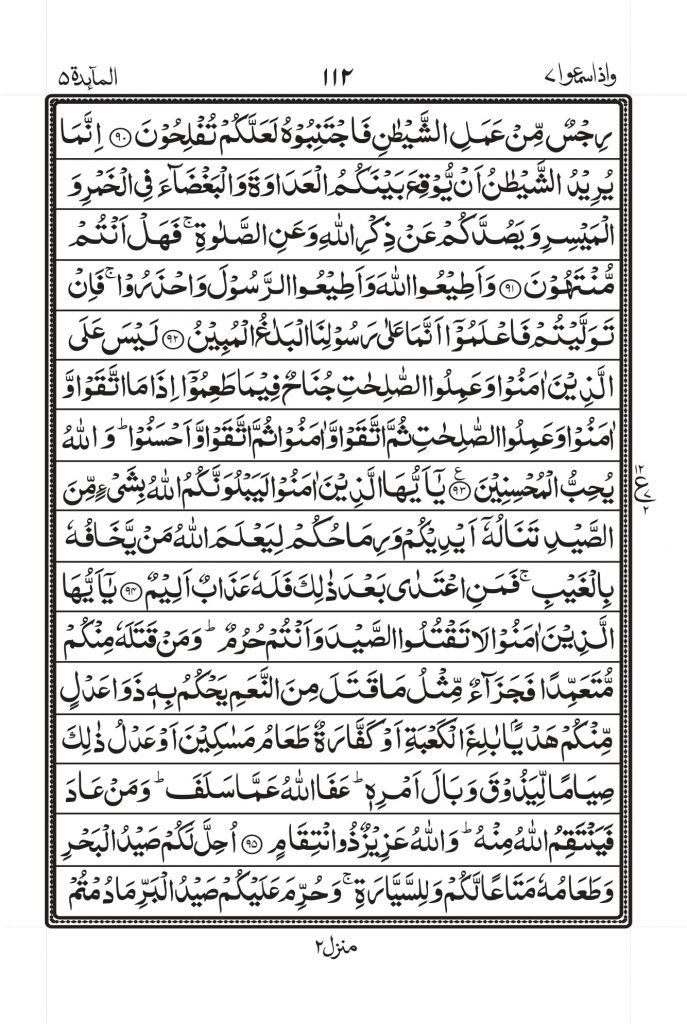 واذا سمعوا ٧
١١٢
المآىٕدة ٥
رِجْسٌ مِّنْ عَمَلِ الشَّيْطٰنِ فَاجْتَنِبُوْهُ لَعَلَّكُمْ تُفْلِحُوْنَ ﴿٩٠﴾ اِنَّمَا
يُرِيْدُ الشَّيْطٰنُ اَنْ يُّوْقِعَ بَيْنَكُمُ الْعَدَاوَةَ وَالْبَغْضَآءَ فِى الْخَمْرِ وَ
الْمَيْسِرِ وَيَصُدَّكُمْ عَنْ ذِكْرِ اللّٰهِ وَعَنِ الصَّلٰوةِ ۚ فَهَلْ اَنْتُمْ
مُّنْتَهُوْنَ ﴿٩١﴾ وَاَطِيْعُوا اللّٰهَ وَاَطِيْعُوا الرَّسُوْلَ وَاحْذَرُوْا ۚ فَاِنْ
تَوَلَّيْتُمْ فَاعْلَمُوْٓا اَنَّمَا عَلٰى رَسُوْلِنَا الْبَلٰغُ الْمُبِيْنُ ﴿٩٢﴾ لَيْسَ عَلَى
الَّذِيْنَ اٰمَنُوْا وَعَمِلُوا الصّٰلِحٰتِ جُنَاحٌ فِيْمَا طَعِمُوْٓا اِذَا مَا اتَّقَوْا وَّ
اٰمَنُوْا وَعَمِلُوا الصّٰلِحٰتِ ثُمَّ اتَّقَوْا وَّاٰمَنُوْا ثُمَّ اتَّقَوْا وَّاَحْسَنُوْا ؕ وَاللّٰهُ
يُحِبُّ الْمُحْسِنِيْنَ ﴿٩٣﴾ ع يٰٓاَيُّهَا الَّذِيْنَ اٰمَنُوْا لَيَبْلُوَنَّكُمُ اللّٰهُ بِشَىْءٍ مِّنَ
١٢ ع ٧ ٢
الصَّيْدِ تَنَالُهٗٓ اَيْدِيْكُمْ وَرِمَاحُكُمْ لِيَعْلَمَ اللّٰهُ مَنْ يَّخَافُهٗ
بِالْغَيْبِ ۚ فَمَنِ اعْتَدٰى بَعْدَ ذٰلِكَ فَلَهٗ عَذَابٌ اَلِيْمٌ ﴿٩٤﴾ يٰٓاَيُّهَا
الَّذِيْنَ اٰمَنُوْا لَا تَقْتُلُوا الصَّيْدَ وَاَنْتُمْ حُرُمٌ ؕ وَمَنْ قَتَلَهٗ مِنْكُمْ
مُّتَعَمِّدًا فَجَزَآءٌ مِّثْلُ مَا قَتَلَ مِنَ النَّعَمِ يَحْكُمُ بِهٖ ذَوَا عَدْلٍ
مِّنْكُمْ هَدْيًۢا بٰلِغَ الْكَعْبَةِ اَوْ كَفَّارَةٌ طَعَامُ مَسٰكِيْنَ اَوْ عَدْلُ ذٰلِكَ
صِيَامًا لِّيَذُوْقَ وَبَالَ اَمْرِهٖ ؕ عَفَا اللّٰهُ عَمَّا سَلَفَ ؕ وَمَنْ عَادَ
فَيَنْتَقِمُ اللّٰهُ مِنْهُ ؕ وَاللّٰهُ عَزِيْزٌ ذُو انْتِقَامٍ ﴿٩٥﴾ اُحِلَّ لَكُمْ صَيْدُ الْبَحْرِ
وَطَعَامُهٗ مَتَاعًا لَّكُمْ وَلِلسَّيَّارَةِ ۚ وَحُرِّمَ عَلَيْكُمْ صَيْدُ الْبَرِّ مَا دُمْتُمْ
منزل ٢